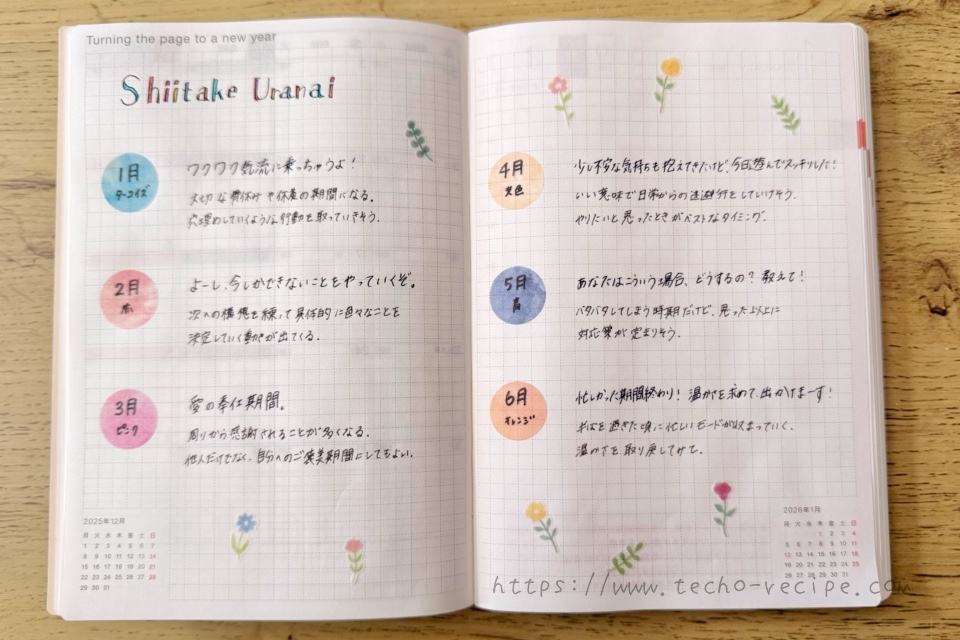 Turning the page to a new year
Shiitake Uranai
1月
ターコイズ
ワクワク気流に乗っちゃうよ!
大切な骨休めや休養の期間になる。
穴埋めしていくような行動を取っていきそう。
2月
赤
よーし、今しかできないことをやっていくぞ。
次への構想を練って具体的に色々なことを
決定していく動きが出てくる。
3月
ピンク
愛の奉仕期間。
周りから感謝されることが多くなる。
他人だけでなく、自分へのご褒美期間にしてもよい。
2025年12月
月 火 水 木 金 土 日
1 2 3 4 5 6 7
8 9 10 11 12 13 14
15 16 17 18 19 20 21
22 23 24 25 26 27 28
29 30 31
4月
茶色
少し不安な気持ちも抱えてきたけど、今日遊んでスッキリした!
いい意味で日常からの逃避行をしていけそう。
やりたいと思ったときがベストなタイミング。
5月
あなたはこういう場合、どうするの?教えて!
バタバタしてしまう時期だけど、思った以上に
対応策が定まりそう。
6月
オレンジ
忙しかった期間終わり!温かさを求めて出かけまーす!
半ばを過ぎた頃に忙しいモードが収まっていく。
温かさを取り戻して
2026年1月
月 火 水 木 金 土 日
1 2 3 4
5 6 7 8 9 10 11
12 13 14 15 16 17 18
19 20 21 22 23 24 25
26 27 28 29 30 31
https://www.techo-recipe.com